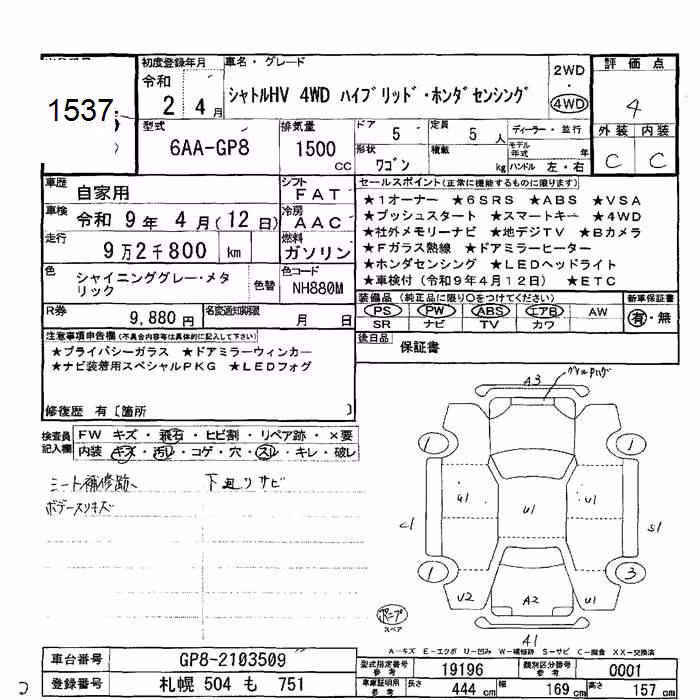 1537
初度登録年月
令和
2 4月
車名・グレード
シャトルHV 4WD ハイブリッド・ホンダセンシング
2WD
・
4WD
評価点
4
外装 内装
C C
型式
6AA-GP8
排気量
1500
CC
ドア 5
定員 5 人
ディーラー・並行
モデル年式 年
形状 ワゴン
積載 kg
ハンドル 左・右
車歴 自家用
シフト FAT
車検 令和 9年 4月(12日)
冷房 AAC
走行 9万2千800 km
燃料 ガソリン
色 シャイニンググレー・メタリック
色替
色コード NH880M
R券 9,880円
名変通知期限 月 日
セールスポイント(正常に機能するものに限ります)
★1オーナー ★6SRS ★ABS ★VSA
★プッシュスタート ★スマートキー ★4WD
★社外メモリーナビ ★地デジTV ★Bカメラ
★Fガラス熱線 ★ドアミラーヒーター
★ホンダセンシング ★LEDヘッドライト
★車検付(令和9年4月12日) ★ETC
装備品(純正品に限り○をつけてください)
PS PW ABS エアB AW
SR ナビ TV カワ
新車保証書
有・無
後日品 保証書
注意事項申告欄(不具合内容等は具体的に記入して下さい)
★プライバシーガラス ★ドアミラーウィンカー
★ナビ装着用スペシャルPKG ★LEDフォグ
修復歴 有〔箇所 〕
検査員記入欄
FW キズ・飛石・ヒビ割・リペア跡・×要
内装 キズ・汚れ・コゲ・穴・スレ・キレ・破レ
シート補修跡、 下廻りサビ
ボデースリキズ
A3
1 1
U1 U1 U1
C1 S1
1 3
U2 A2 U1
A1
スペア
A-キズ E-エクボ U-凹み W-補修跡 S-サビ C-腐食 XX-交換済
車台番号 GP8-2103509
登録番号 札幌 504 も 751
型式指定番号 参考 19196
類別区分番号 参考 0001
車庫証明用 参考 長さ 444 cm 幅 169 cm 高さ 157 cm